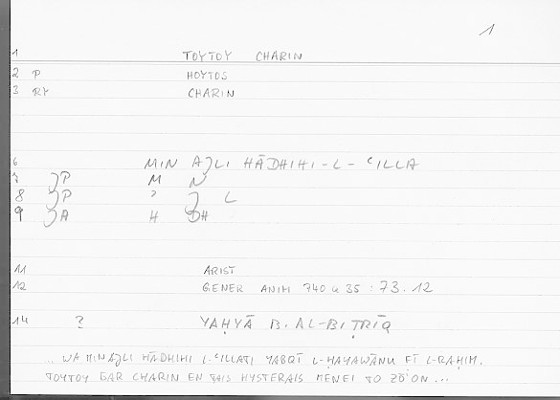 1
1 TOYTOY CHARIN
2 P HOYTOS
3 RY CHARIN
6 MIN AJLI HĀDHIHI-L-ʿILLA
7 JP M N
8 JP ? J L
9 JA H DH
11 ARIST
12 GENER ANIM 740 a 35 : 73.12
14 ? YAḤYĀ B. AL-BIṬRĪQ
... WA MIN AJLI HĀDHIHI L-ʿILLATI YABQĪ L-ḤAYAWĀNU FĪ L-RAḤIM.
TOYTOY GAR CHARIN EN TAIS HYSTERAIS MENEI TO ZŌ'ON ...